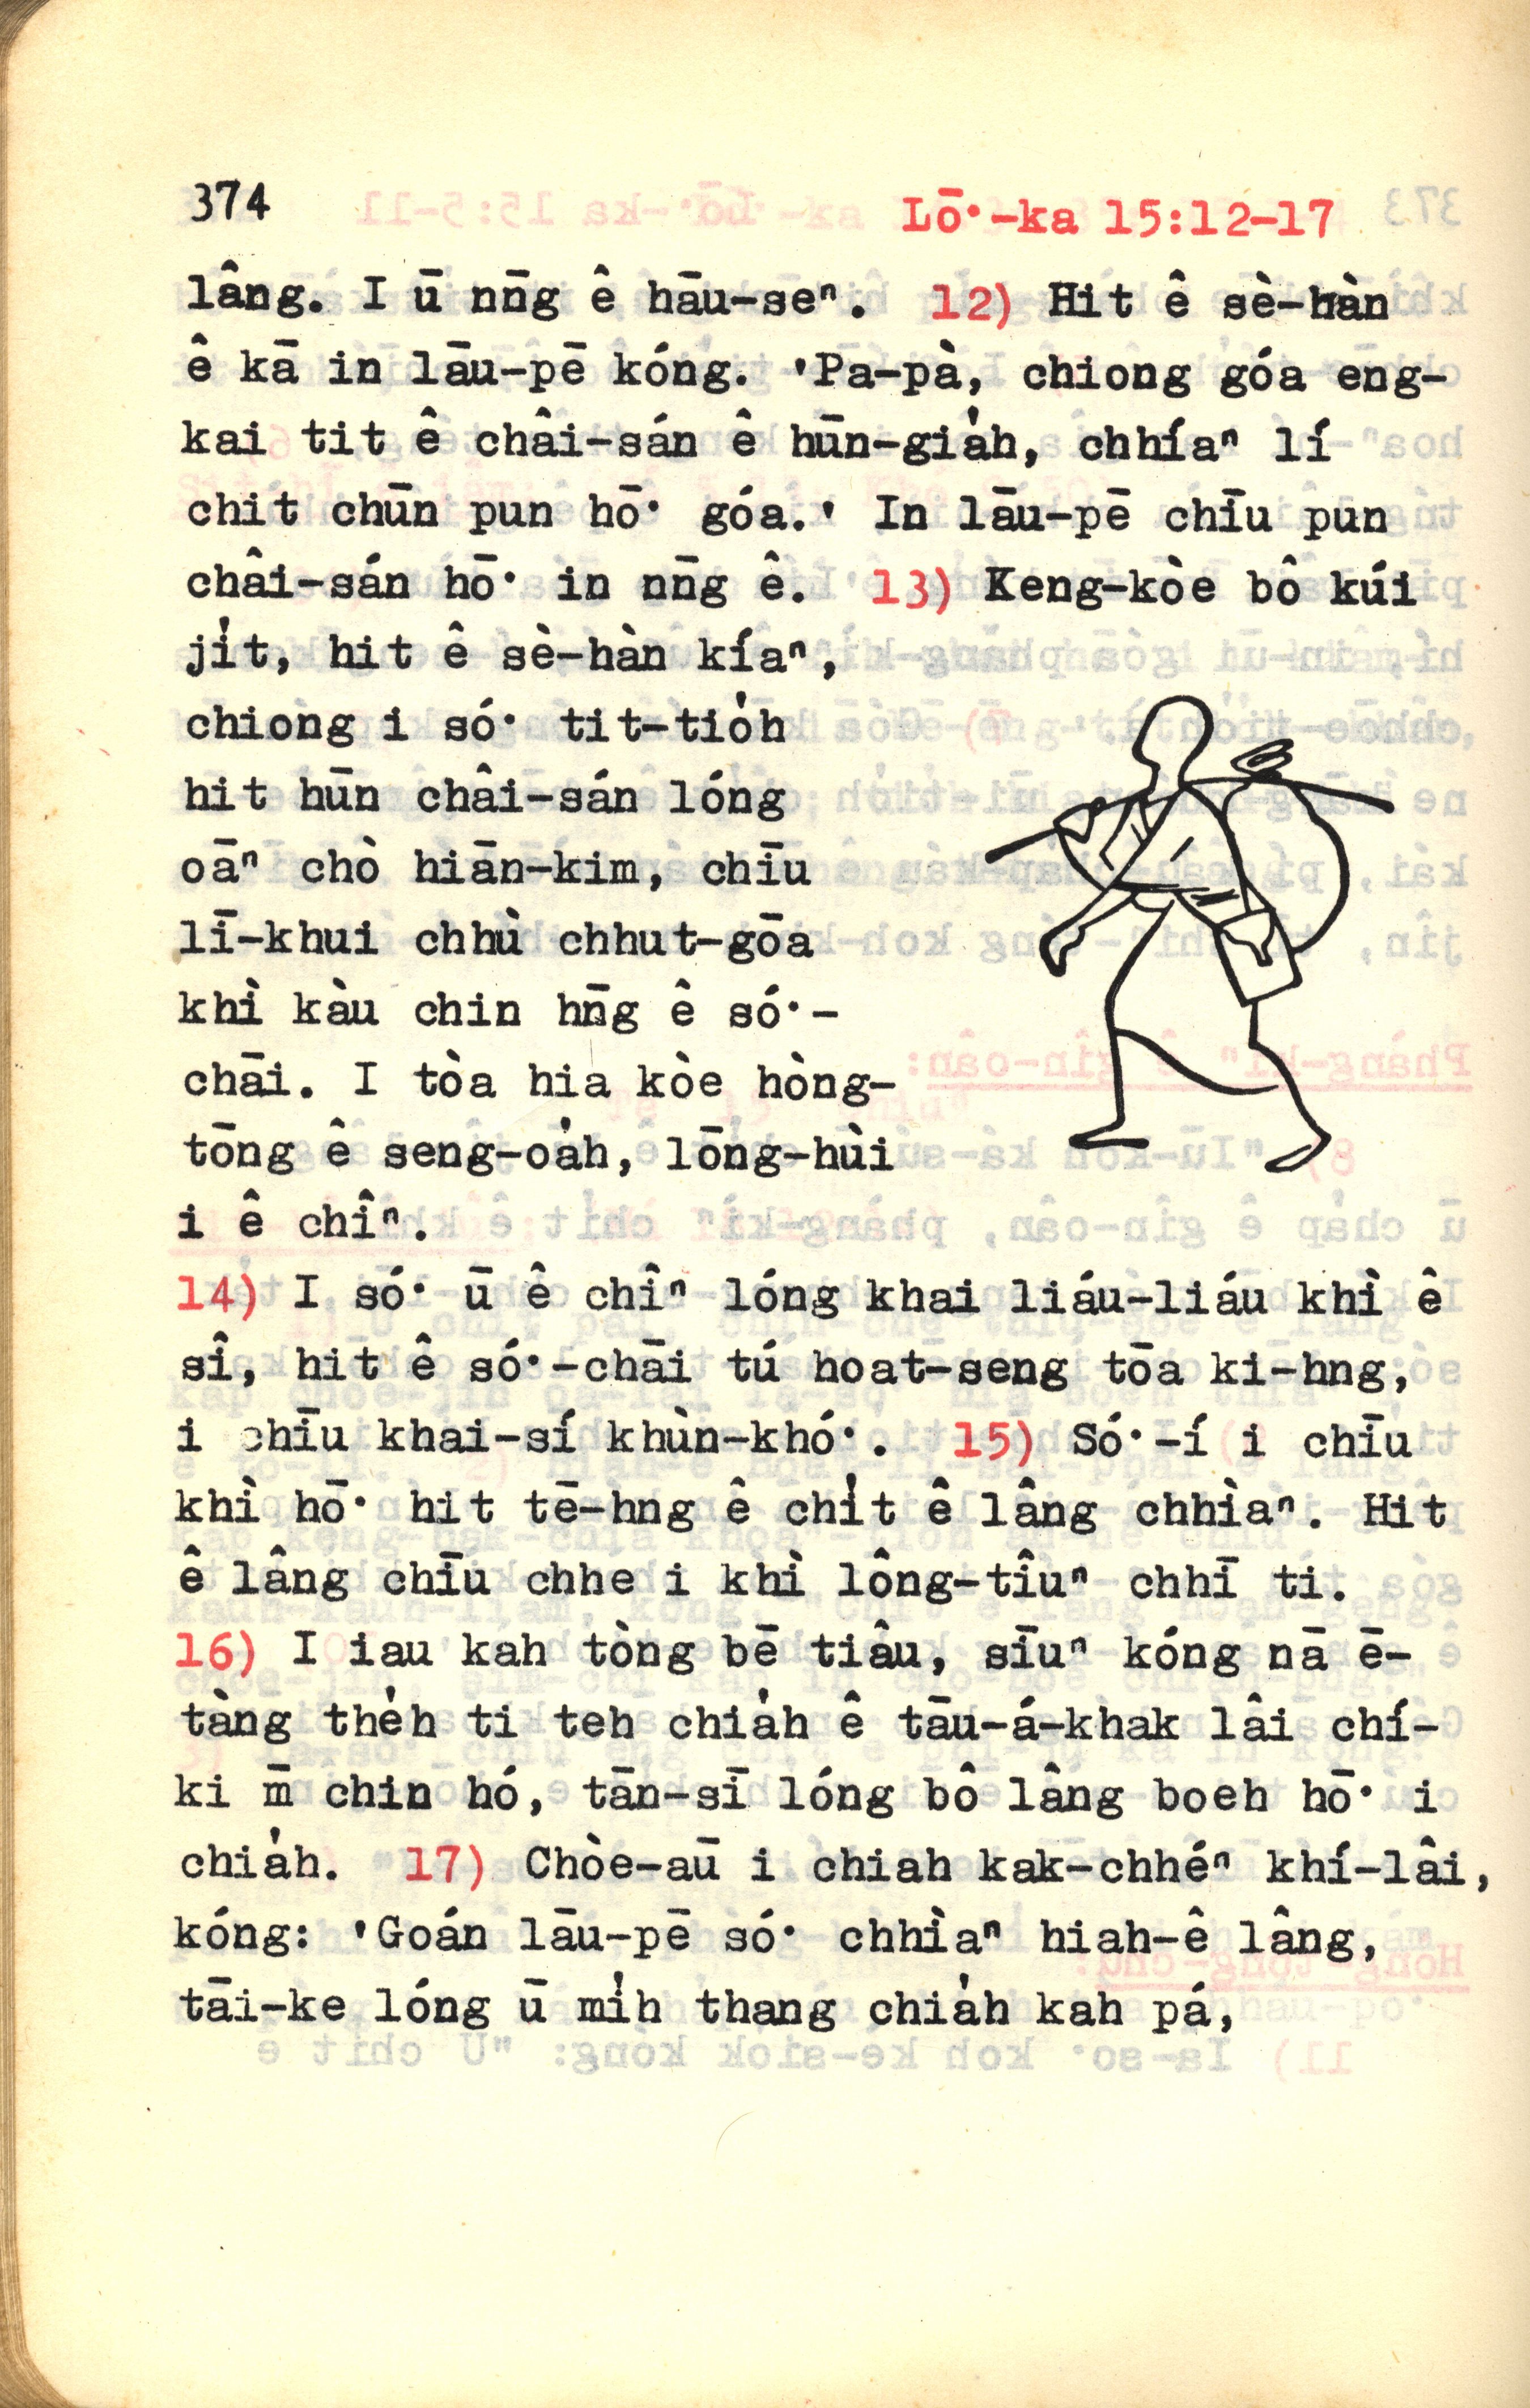 374 Lō͘-ka 15:12-17
lâng. I ū nn̄g ê hāu-seⁿ. 12) Hit ê sè-hàn
ê kā in lāu-pē kóng. 'Pa-pà, chiong góa eng-
kai tit ê châi-sán ê hūn-gia̍h, chhíaⁿ lí
chit chūn pun hō͘ góa.' In lāu-pē chīu pun
châi-sán hō͘ in nn̄g ê. 13) Keng-kòe bô kúi
ji̍t, hit ê sè-hàn kíaⁿ,
chiong i só͘ tit-tio̍h
hit hūn châi-sán lóng
oāⁿ chò hiān-kim, chīu
lī-khui chhù chhut-gōa
khì kàu chin hn̄g ê só͘-
chāi. I tòa hia kòe hòng-
tōng ê seng-oa̍h, lōng-hùi
i ê chîⁿ.
14) I só͘ ū ê chîⁿ lóng khai liáu-liáu khì ê
sî, hit ê só͘-chāi tú hoat-seng tōa ki-hng,
i chīu khai-sí khùn-khó͘. 15) Só͘-í i chīu
khì hō͘ hit tē-hng ê chi̍t ê lâng chhìaⁿ. Hit
ê lâng chīu chhe i khì lông-tîuⁿ chhī ti.
16) I iau kah tòng bē tiâu, sīuⁿ kóng nā ē-
tàng the̍h ti teh chia̍h ê tāu-á-khak lâi chí-
ki m̄ chin hó, tān-sī lóng bô lâng boeh hō͘ i
chia̍h. 17) Chòe-aū i chiah kak-chhéⁿ khí-lâi,
kóng: 'Goán lāu-pē só͘ chhìaⁿ hiah-ê lâng,
tāi-ke lóng ū mi̍h thang chia̍h kah pá,